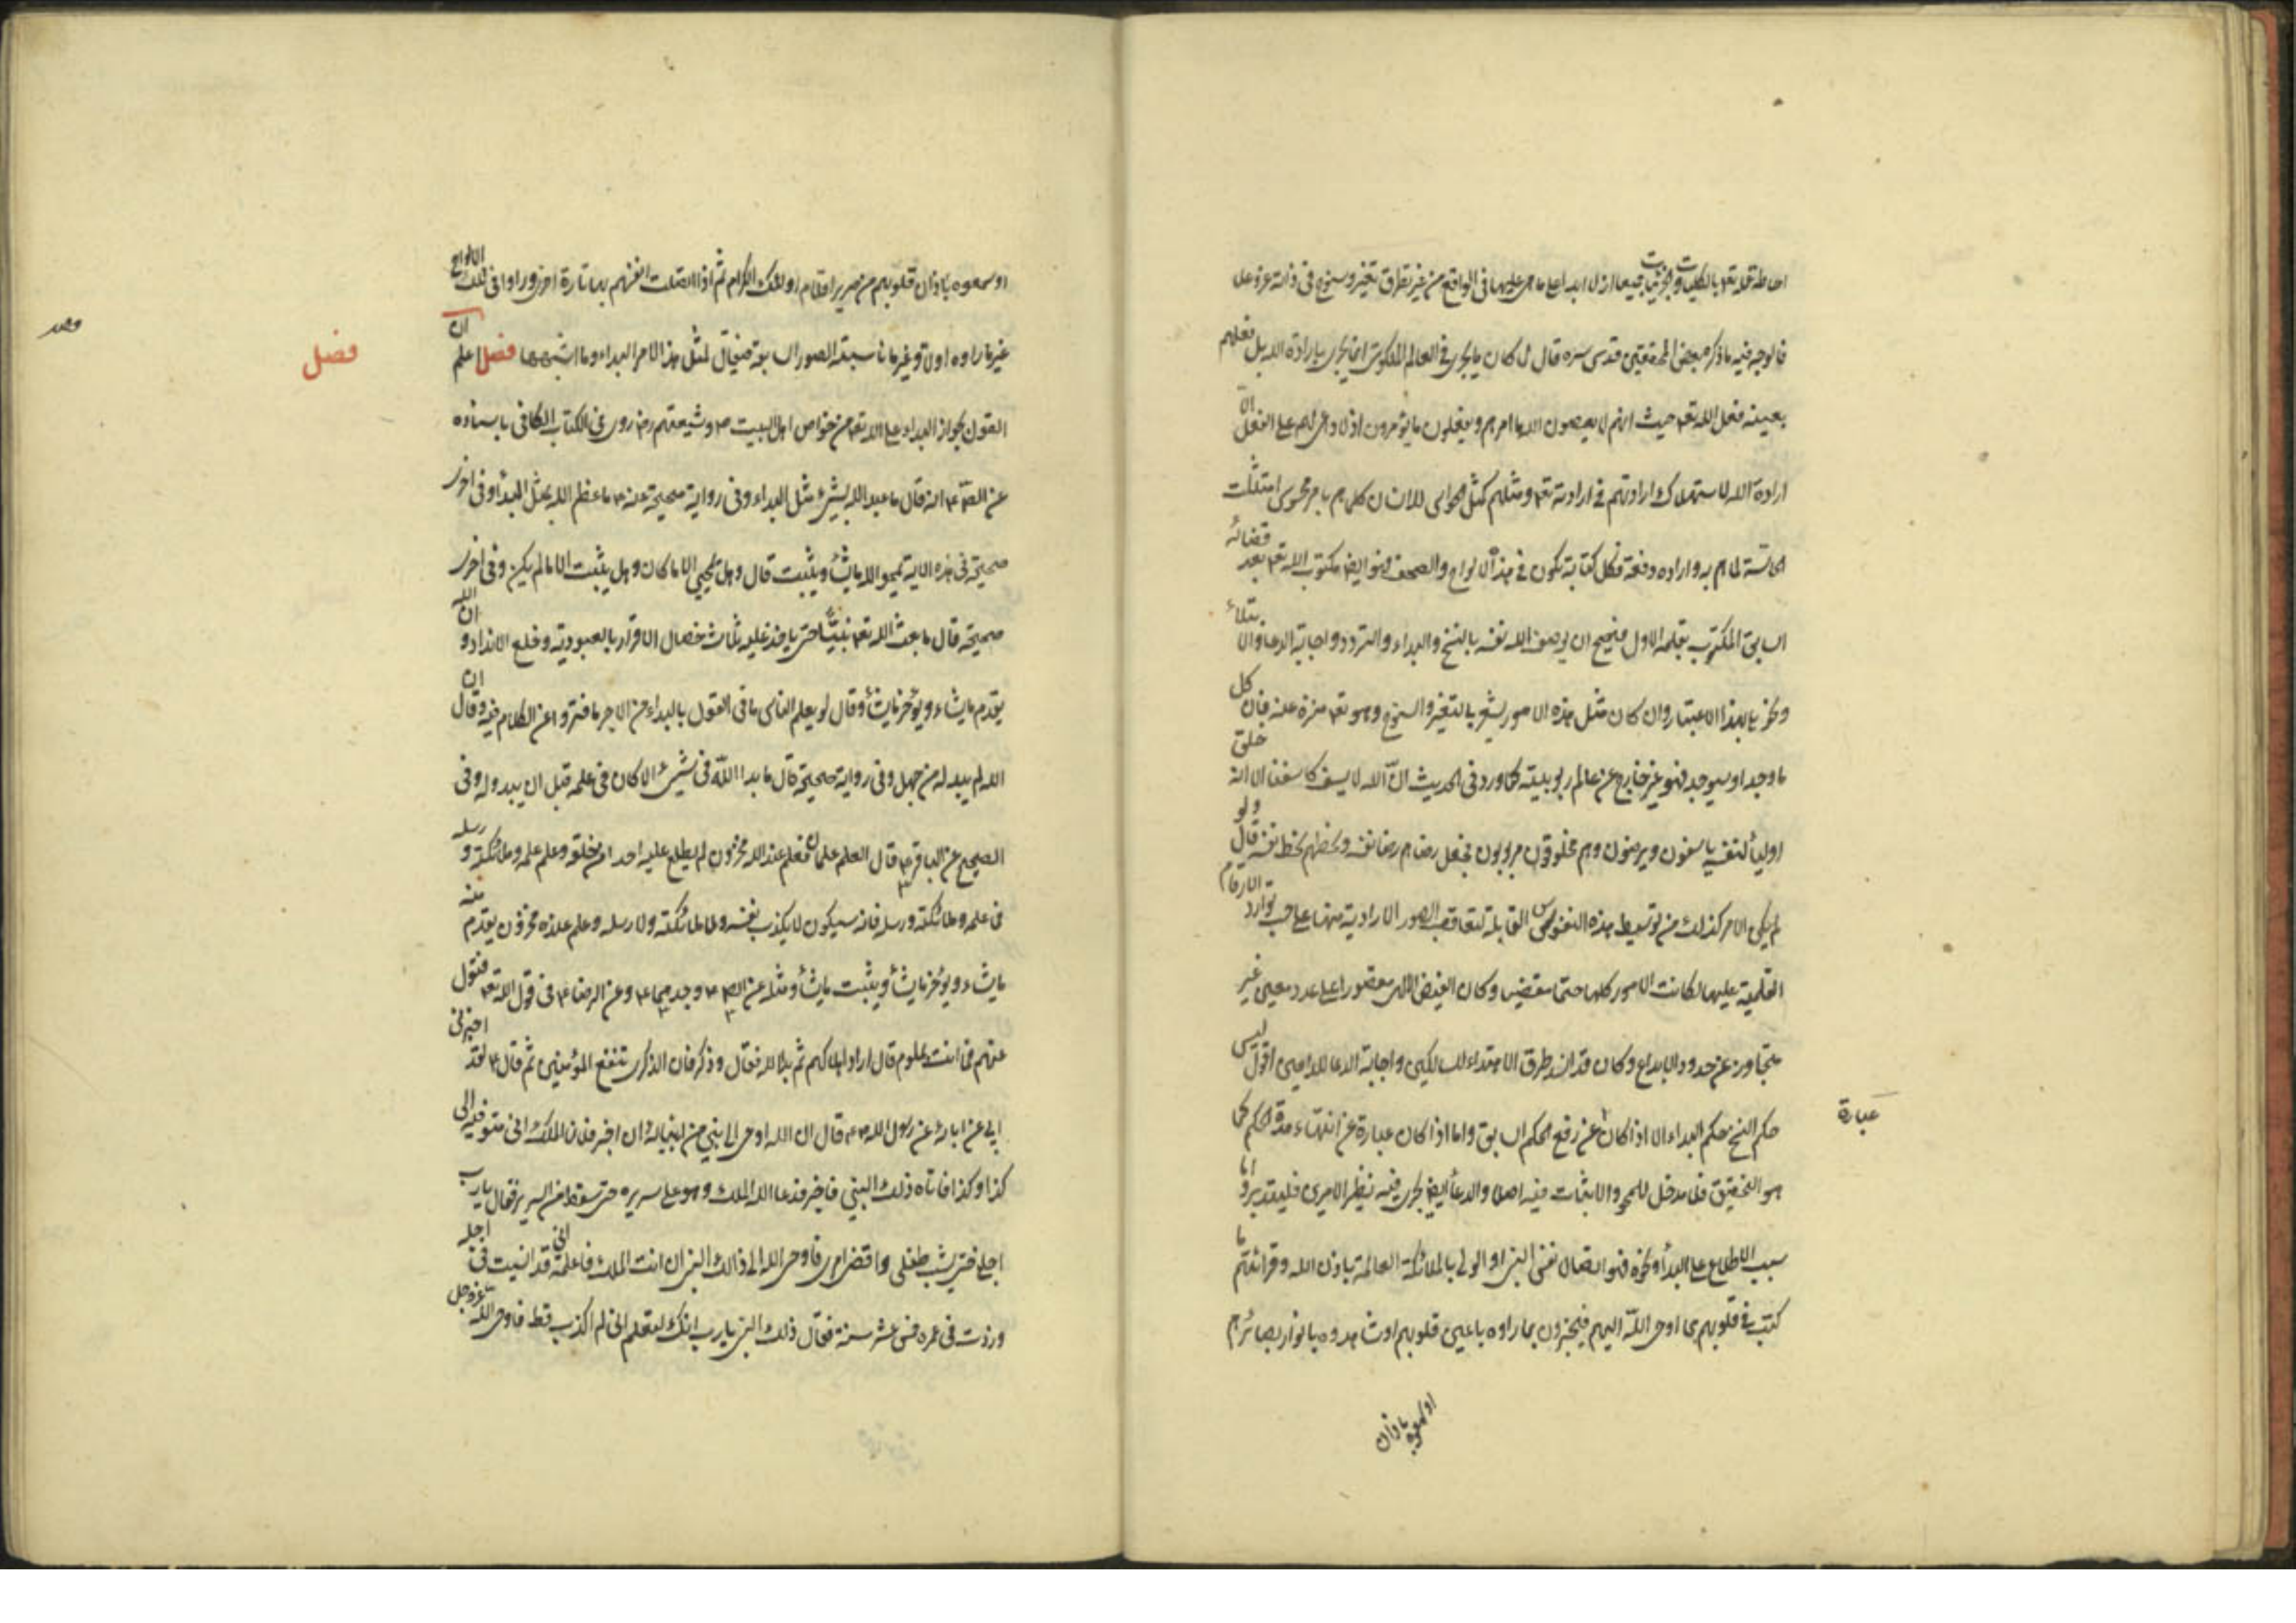 احاطة علمه تعه بالكليات والجزئيات جميعا ازلا وابدا على ما هى عليها فى الواقع من غير تطرق تغير وسنوح فى ذاته عز وجل
فالوجه فيه ما ذكره بعض المحققين قدس سره قال كان ما يجرى فى العالم الملكوتى انما يجرى بارادة الله بل فعلهم
بعينه فعل الله تعه حيث انهم لا يعصون الله ما امرهم ويفعلون ما يؤمرون اذ لا داعى لهم على الفعل الا
ارادة الله لاستهلاك ارادتهم فى ارادته تعه ومثلهم كمثل الحواس للانسان كلما هم بامر محسوس امتثلت
الحاسة لما هم به واراده دفعة فكل كتابة تكون فى هذه الالواح والصحف فهو ايضا مكتوب الله تعه بعد قضائه
السابق المكتوب بقلمه الاول فيصح ان يوصف الله نفسه بالنسخ والبداء والتردد واجابة الدعا والابتلاء
ونحوها بهذا الاعتبار وان كان مثل هذه الامور يشعر بالتغير والسنوح وهو تعه منزه عنه فان كل
ما وجد او سيوجد فهو غير خارج عن عالم ربوبيته كما ورد فى الحديث ان الله لا يأسف كاسفنا الا انه خلق
اولياء لنفسه ياسفون ويرضون وهم مخلوقون مربوبون فجعل رضاهم رضا نفسه وسخطهم سخط نفسه قال ولو
لم يكن الامر كذلك من توسيط هذه النفوس القابلة لتعاقب الصور الارادية منها على حسب توارد الارقام
القلمية عليها لكانت الامور كلها حتما مقضيا وكان الفيض الالهى مقصورا على عدد معين غير
متجاوز عن حدود الابداع وكان قد انسد طرق الاهتداء للسالكين واجابة الدعا للداعين اقول ليس
حكم النسخ حكم البداء الا اذا كان عن رفع الحكم السابق واما اذا كان عبارة عن انتهاء مدة الحكم كما
عبارة
هو التحقيق فلا مدخل للمحو والاثبات فيه اصلا والدعاء ايضا يجرى فيه نظير الامرين فليتدبر واما
سبب الاطلاع على البداء ونحوه فهو اتصال نفس النبى او الولى بالملائكة العالمة باذن الله وقرائتهم ما
كتب فى قلوبهم مما اوحى الله اليهم فيخبرون بما راوه باعين قلوبهم او شاهدوه بانوار بصائرهم
او سمعوه باذان
او سمعوه باذان قلوبهم من صرير اقلام اولئك الكرام ثم اذا اتصلت انفسهم بها تارة اخرى وراوا فى تلك الالواح
غير ما راوه اولا وغير ما ناسبته الصور السابقة فيقال لمثل هذا الامر البداء وما اشبهها فصل اعلم ان
فصل
القول بجواز البداء على الله تعه من خواص اهل البيت ص وشيعتهم رض روى فى الكتاب الكافى باسناده
عن الص ع انه قال ما عبد الله بشىء مثل البداء وفى رواية صحيحة عنه ع ما عظم الله بمثل البداء وفى اخرى
صحيحة فى هذه الاية يمحو الله ما يشاء ويثبت قال وهل يمحى الا ما كان وهل يثبت الا ما لم يكن وفى اخرى
صحيحة قال ما بعث الله تعه نبيا حتى ياخذ عليه ثلث خصال الاقرار بالعبودية وخلع الانداد وان الله
يقدم ما يشاء ويؤخر ما يشاء وقال لو يعلم الناس ما فى القول بالبداء من الاجر ما فتروا عن الكلام فيه وقال ان
الله لم يبد له من جهل وفى رواية صحيحة قال ما بدا الله فى شىء الا كان فى علمه قبل ان يبدو له وفى
الصحيح عن الباقر ع قال العلم علمان فعلم عند الله مخزون لم يطلع عليه احدا من خلقه وعلم علمه وملائكته ورسله
فما علمه وملائكته ورسله فانه سيكون لا يكذب نفسه ولا ملائكته ولا رسله وعلم عنده مخزون يقدم منه
ما يشاء ويؤخر ما يشاء ويثبت ما يشاء ومثله عن الص ع وجد فيما ع وعن الرضا ع فى قول الله تعه فتول
عنهم فما انت بملوم قال اراد اهلاكهم ثم بدا لله فقال وذكر فان الذكرى تنفع المؤمنين ثم قال ع لقد اخبرنى
ابى عن ابائه عن رسول الله ص قال ان الله اوحى الى نبى من انبيائه ان اخبر فلان الملك انى متوفيه الى
كذا وكذا فاتاه ذلك النبى فاخبره فدعا الله الملك وهو على سريره حتى سقط من السرير فقال يا رب
اجلنى حتى يشب طفلى واقضى امرى فاوحى الله الى ذلك النبى ان ائت الملك فاعلمه انى قد انسيت فى اجله
وزدت فى عمره خمس عشر سنة فقال ذلك النبى يا رب انك لتعلم انى لم اكذب قط فاوحى الله عز وجل